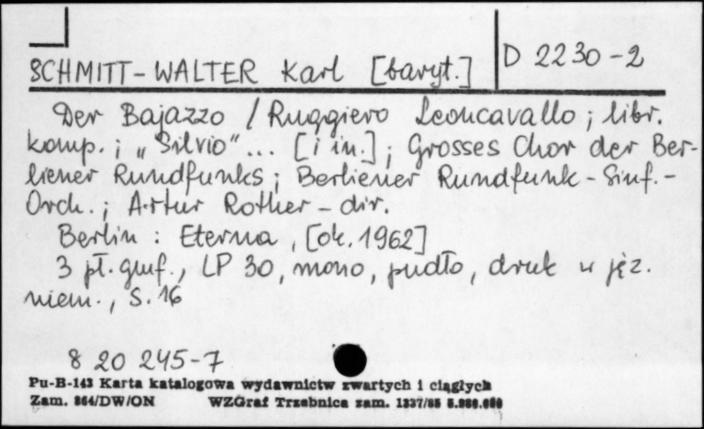 SCHMITT-WALTER Karl [baryt.] D 2230-2
Der Bajazzo / Ruggiero Leoncavallo ; libr.
komp. ; „Silvio"... [i in.] ; Grosses Chor der Ber-
liener Rundfunks ; Berliener Rundfunk-Sinf.-
Orch. ; Artur Rother - dir.
Berlin : Eterna, [ok. 1962]
3 pł. gmf., LP 30, mono, pudło, druk w jęz.
niem., S. 16
8 20 245-7
Pu-B-143 Karta katalogowa wydawnictw zwartych i ciągłych
Zam. 864/DW/ON WZGraf Trzebnica zam. 1337/85 5.000.000